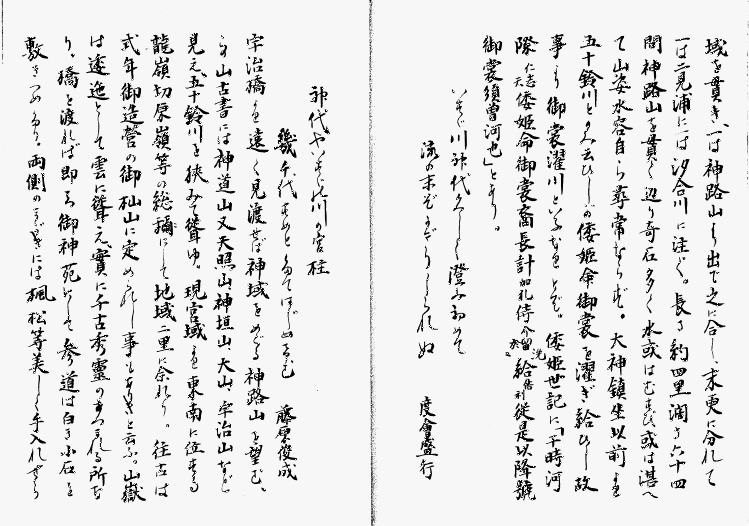 域を貫き、一は神路山より出で之に合し、末更に分れて
一は二見浦に一は汐合川に注ぐ。長さ約四里濶さ六十四
間神路山を貫く辺り奇石多く水或はむせび或は湛へ
て山姿水容自ら尋常ならず。大神鎮坐以前より
五十鈴川と云ひしが倭姫命御裳を濯ぎ給ひし故
事より御裳濯川といふなりとぞ。倭姫世記に「于時河
際仁志天倭姫命御裳裔長計加礼侍介留於洗給倍利從是以降號
御裳須曽河也」とあり。
いすゞ川神代かけて澄み初めて
流の末ぞかぎりしられぬ
度會盛行
神代やいすゞ川の宮柱
幾千代すめとたてはじめけむ
藤原俊成
宇治橋より遠く見渡せば神域をめぐる神路山を望む、
この山古書には神道山又天照山、神垣山、大山、宇治山など
見え、五十鈴川を挟みて聳ゆ。現宮域より東南に位する
龍嶺切原嶺等の総稱にして地域二里に余れり。往古は
式年御造營の御杣山に定められし事もありきと云ふ。山嶽
は逶迤として雲に聳え、實に千古秀靈のあつまる所な
り。橋を渡れば即ち御神苑にして参道は白き小石を
敷きつめたり。両側の芝生には楓、松等美しく手入れせら